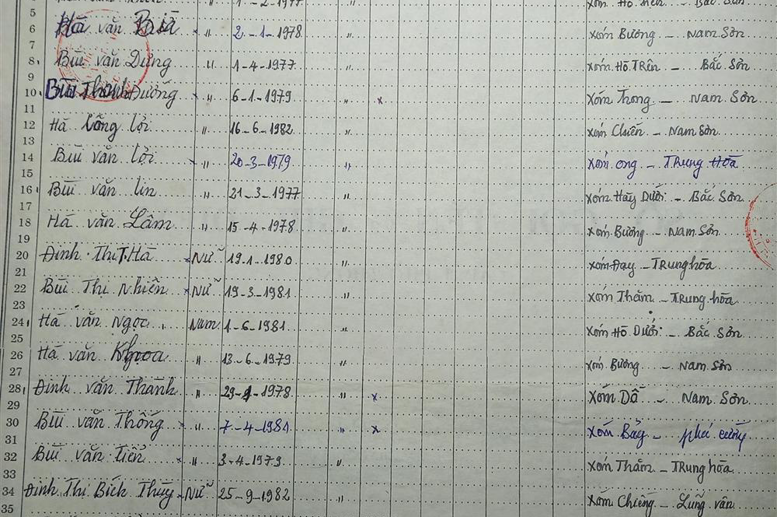 5 1-2-1977 Xóm Hồ trên - Bắc Sơn
6 Hà văn " 2-1-1978 " Xóm Bương - Nam Sơn
7
8 Bùi văn Dựng " 1-4-1977 " Xóm Hồ Trên - Bắc Sơn
9
10 Bùi Thanh Đường " 6-1-1979 " x Xóm Trong - Nam Sơn
11
12 Hà Công lợi " 16-6-1982 " Xóm Chiến - Nam Sơn
13
14 Bùi văn lợi " 20-3-1979 " Xóm ong - Trung Hòa
15
16 Bùi văn lin " 21-3-1977 " Xóm Hày Dưới - Bắc Sơn
17
18 Hà văn Lâm " 15-4-1978 " Xóm Bương - Nam Sơn
19
20 Đinh Thị T. Hà Nữ 19-1-1980 " Xóm Đạy - Trung hòa
21
22 Bùi Thị Nhiên Nữ 19-3-1981 " Xóm Thăm - Trung hòa
23
24 Hà văn Ngọc Nam 1-6-1981 " Xóm Hồ Dưới - Bắc Sơn
25
26 Hà văn Khoa " 13-6-1979 " Xóm Bương - Nam Sơn
27
28 Đinh văn Thanh " -1978 " x Xóm Dồ - Nam Sơn
29
30 Bùi văn Thống " 7-4-1981 " x Xóm Bảy - phú cường
31
32 Bùi văn tiến " 3-4-1979 " Xóm Thăm - Trung hòa
33
34 Đinh Thị Bích Thủy Nữ 25-9-1982 " Xóm Chiềng - Lũng vân
35